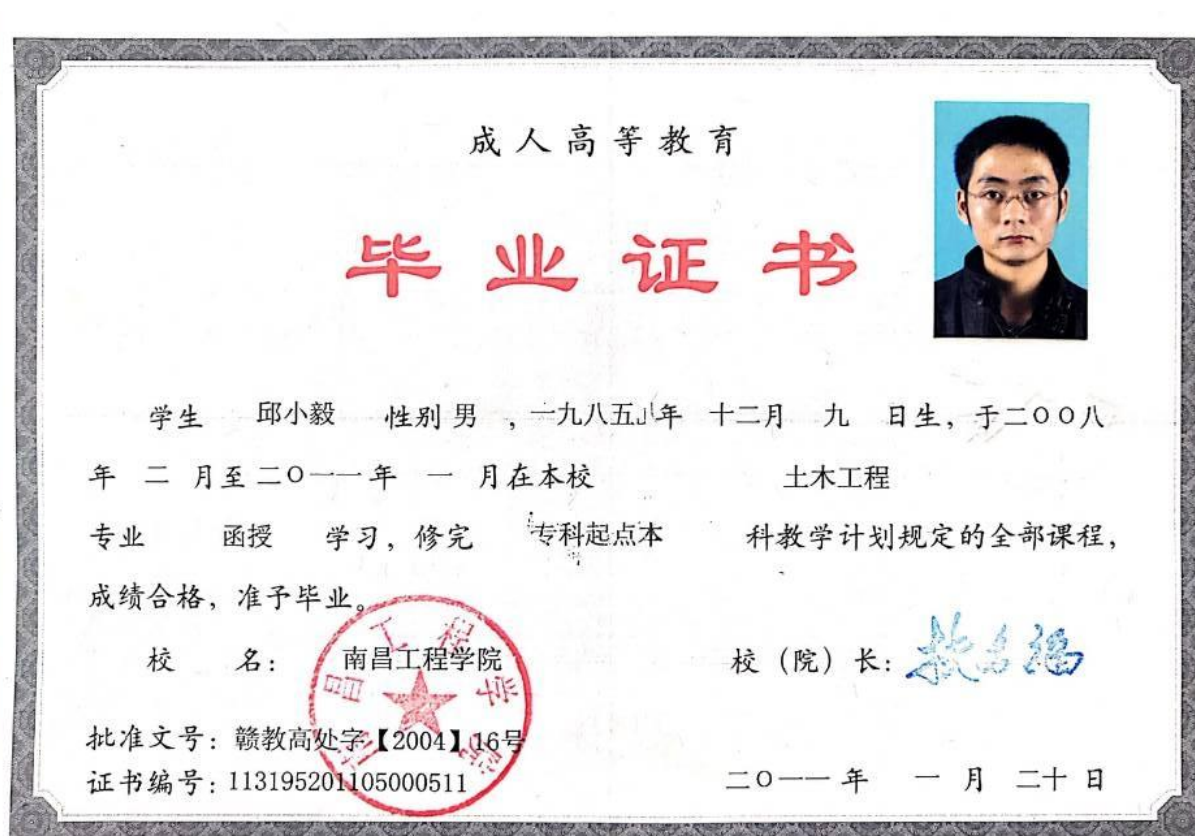 成人高等教育
毕业证书
学生 邱小毅 性别 男 , 一九八五年 十二月 九 日生, 于二〇〇八
年 二 月至 二〇一一年 一 月在本校 土木工程
专业 函授 学习, 修完 专科起点本 科教学计划规定的全部课程,
成绩合格, 准予毕业。
校 名: 南昌工程学院 校（院）长:
南昌工程学院
批准文号: 赣教高处字【2004】16号
证书编号: 113195201105000511 二〇一一 年 一 月 二十 日